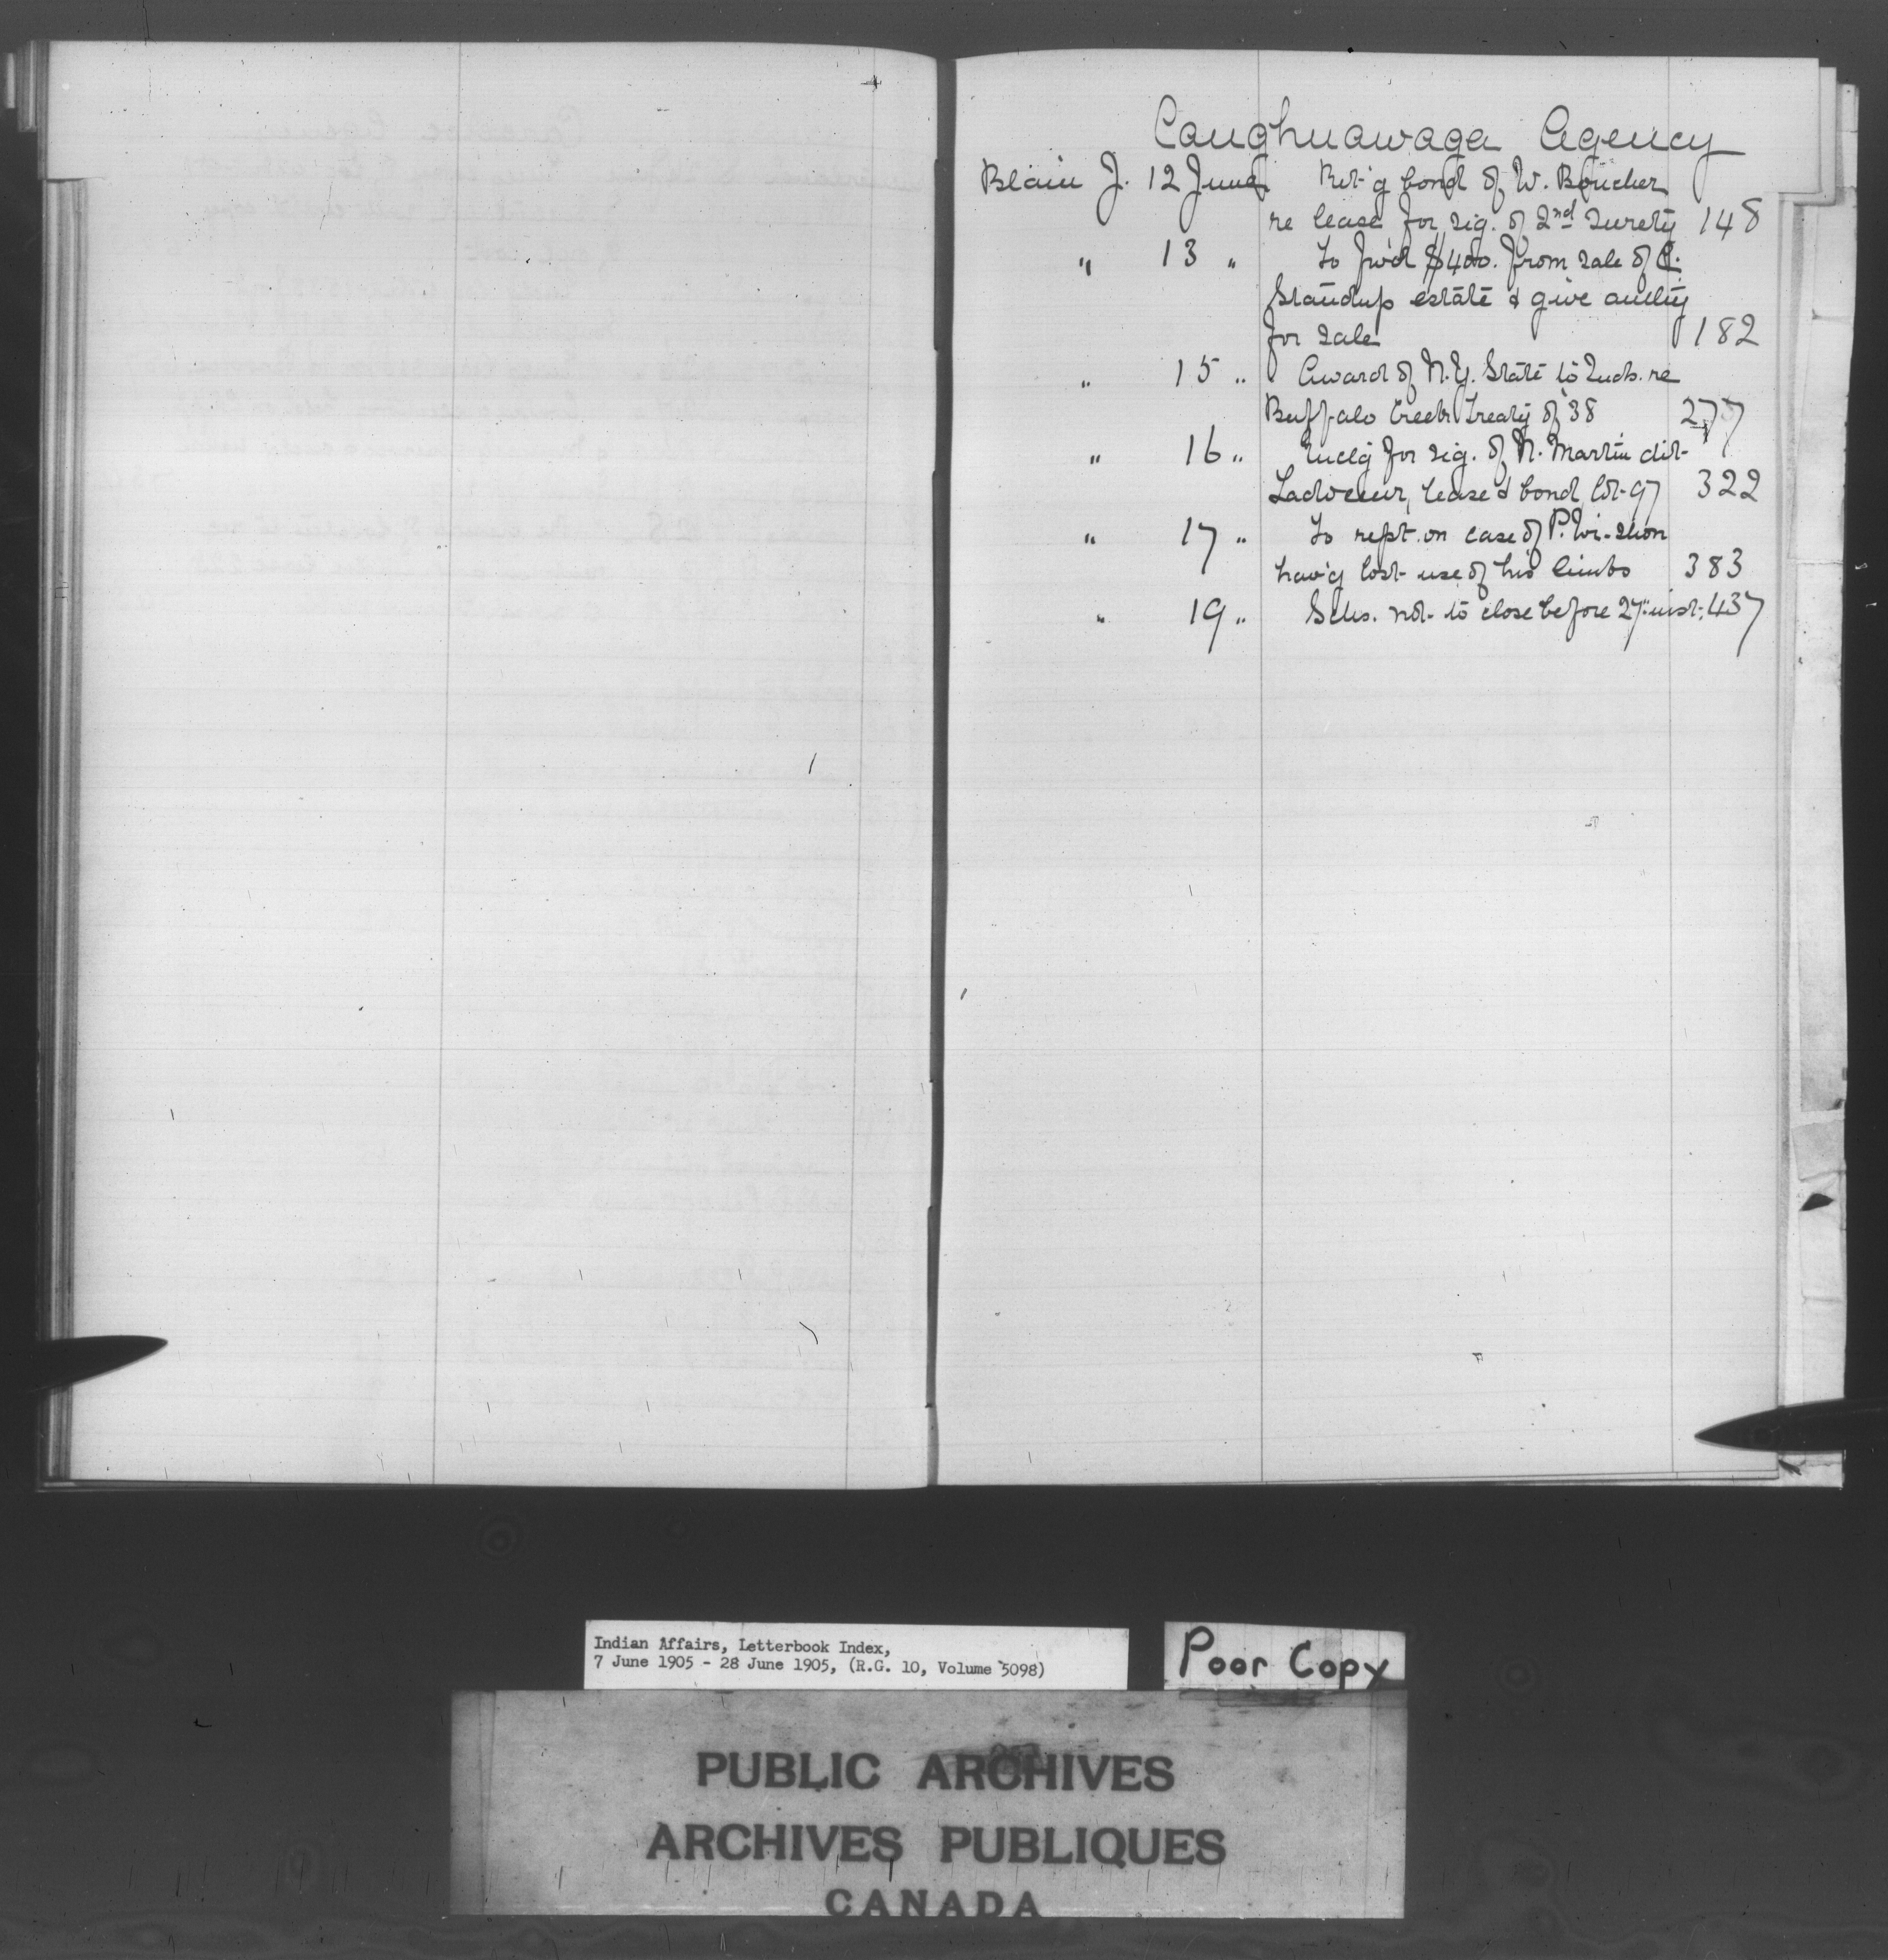 Caughnawaga Agency
Blain J. 12 June Ret'g bond of W. Boucher
re lease for sig. of 2nd surety 148
" 13 " To fwd $400. from sale of
Standup estate & give auth'y
for sale 182
" 15 " Award of N.Y. State to Inds. re
Buffalo Creek Treaty of '38 277
" 16 " Encl'g for sig. of N. Martin dit-
lease & bond, lot 97 322
" 17 " To rept. on case of P. Wi-shon
hav'g lost use of his limbs 383
" 19 " Schs. not to close before 27" inst. 437
Indian Affairs, Letterbook Index,
7 June 1905 - 28 June 1905, (R.G. 10, Volume 5098)
Poor Copy
PUBLIC ARCHIVES
ARCHIVES PUBLIQUES
CANADA